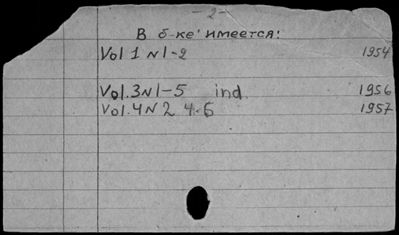 - 2 -
В б-ке имеется:
Vol 1 N 1-2 1954
Vol. 3 N 1-5 ind. 1956
Vol. 4 N 2 4-6 1957